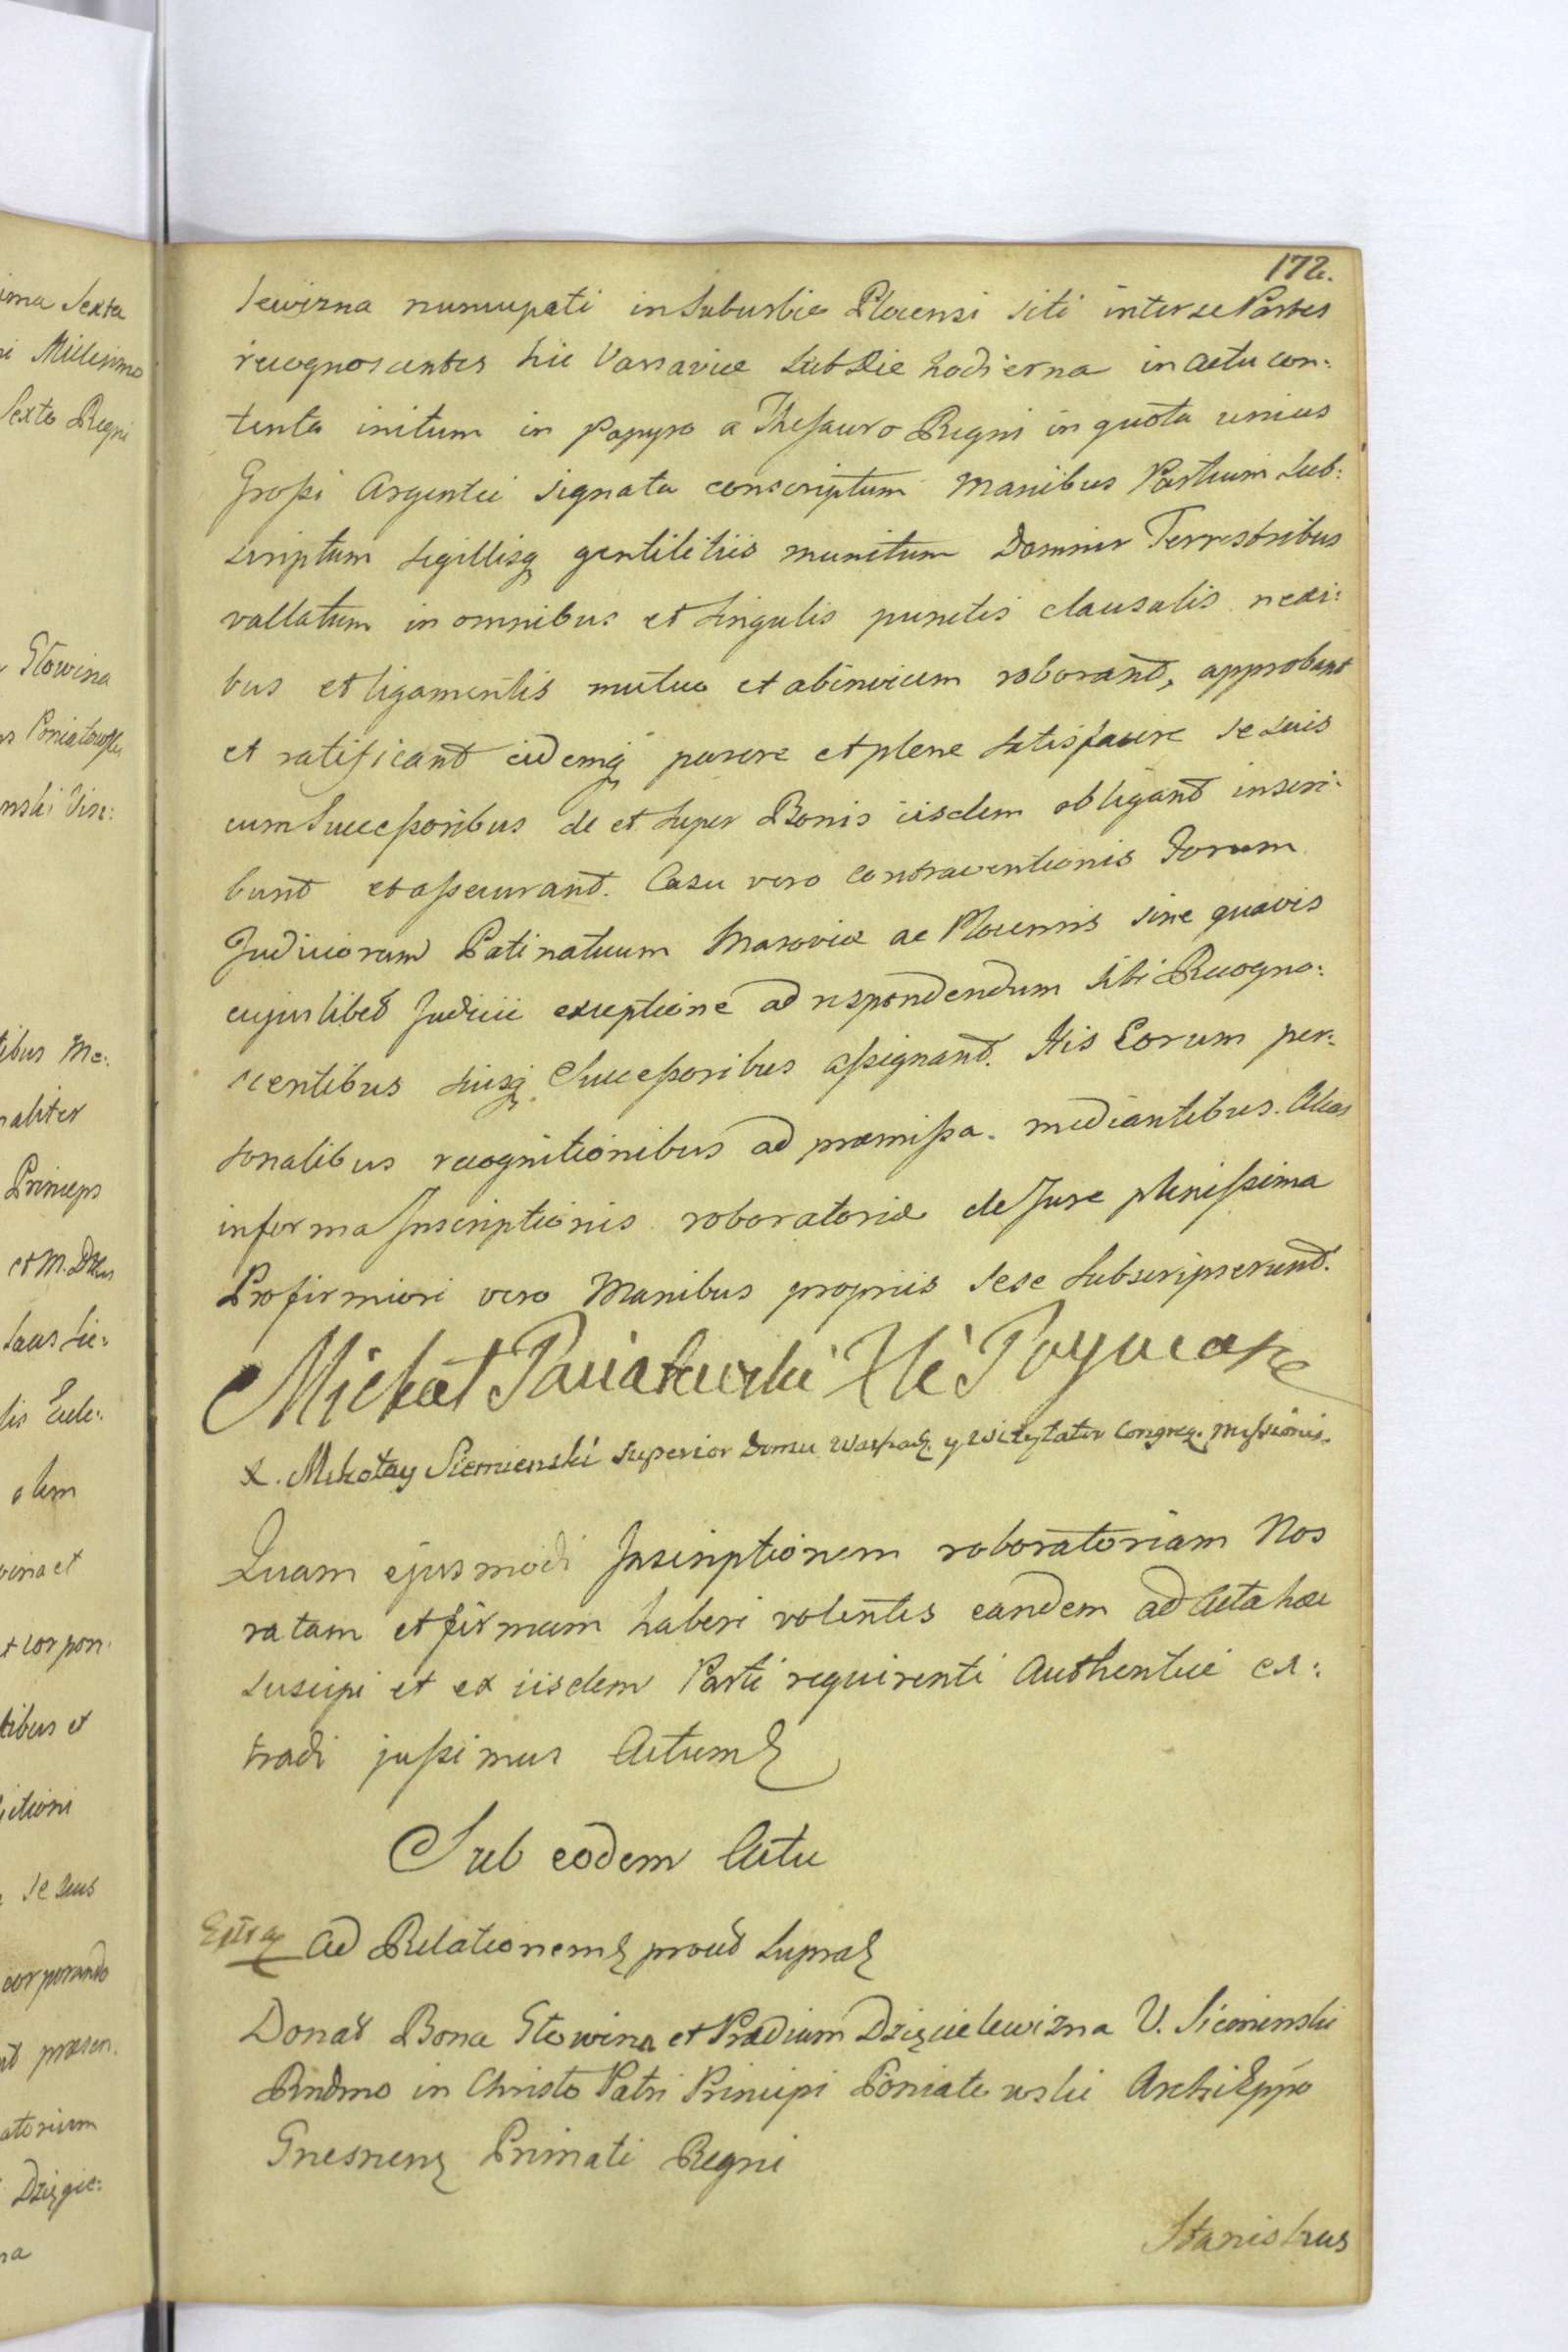 172.
lewizna nuncupati in Suburbio Plocensi siti inter se Partes
recognoscentes hic Varsaviæ Sub Die hodierna in actu con:
tenta initum in papyro a Thesauro Regni in quota unius
Grossi Argentei signata conscriptum Manibus Partium Sub:
scriptum Sigillisq gentilitiis munitum Terrestribus
vallatum in omnibus et Singulis punctis clausulis nexi:
bus et ligamentis mutuo et abinvicem roborant, approbant
et ratificant eidemq parere et plene Satisfacere se Suis
cum Successoribus de et Super Bonis iisdem obligant inscri:
bunt et assecurant. Casu vero contraventionis Forum
Judiciorum Palatinatuum Masoviæ ac Plocensis sine quavis
cujuslibet Judicii exceptione ad respondendum Sibi Recogno:
scentibus Suisq Successoribus assignant. His Eorum per:
sonalibus recognitionibus ad præmissa mediantibus. Alias
in forma Inscriptionis roboratoriæ de Jure plenissima
Pro firmiori vero Manibus propriis Sese Subscripserunt.
Michał Poniatowski
X. Mikołay Siemienski Superior Domu Warszaw. y Wizytator Congreg. Missionis.
Quam ejusmodi Inscriptionem roboratoriam Nos
ratam et firmam haberi volentes eandem ad Acta hæc
suscipi et ex iisdem Parti requirenti Authentice ex:
tradi jussimus Actum
Sub eodem Actu
Ad Relationem prout Supra
Donat Bona Słowina et Prædium Dzięcielewizna V. Siemienski
Rndmo in Christo Patri Principi Poniatowski ArchiEppo
Gnesnen Primati Regni
Stanislaus
ima Sexta
ni Millesimo
Sexto Regni
Słowina
Poniatowski
tibus Me:
naliter
Princeps
et M. Dnus
laus Sie:
lis Eccle:
olim
wina et
et corpor.
tibus et
se Suis
corporando
præsen.
atorium
Dzięgie:
na